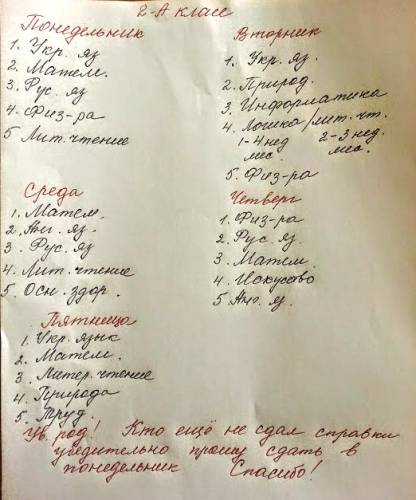 2-А класс
Понедельник
1. Укр. яз
2. Матем.
3. Рус. яз
4. Физ-ра
5 Лит. чтение
Вторник
1. Укр. яз.
2. Природ.
3. Информатика
4. Логика/лит. чт.
1-4 нед 2-3 нед.
мес. мес.
5. Физ-ра
Среда
1. Матем.
2. Анг. яз.
3. Рус. яз
4. Лит. чтение
5. Осн. здор.
Четверг
1. Физ-ра
2. Рус. яз.
3. Матем.
4. Искусство
5. Анг. яз.
Пятница
1. Укр. язык
2. Матем.
3. Литер. чтение
4. Природа
5. Труд.
Ув. род! Кто ещё не сдал справки
убедительно прошу сдать в
понедельник Спасибо!